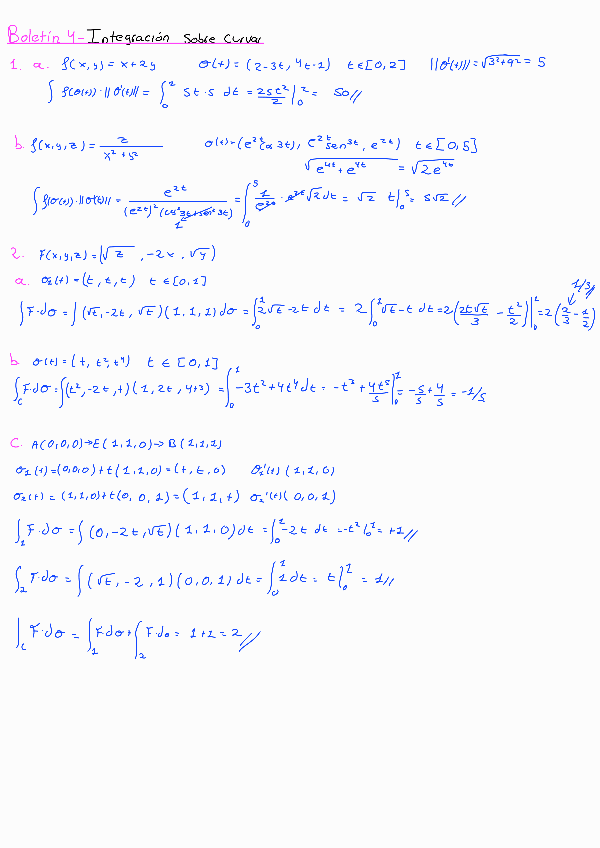 Boletín 4 - Integración Sobre Curvas
1. a. f(x,y) = x+2y σ(t) = (2-3t, 4t-1) t∈[0,2] ||σ'(t)|| = √(3²+4²) = 5
∫ f(σ(t))·||σ'(t)|| = ∫₀² 5t·5 dt = 25t²/2 |₀² = 50//
b. f(x,y,z) = z/(x²+y²) σ(t) = (e^{2t} cos 3t, e^{2t} sen 3t, e^{2t}) t∈[0,5]
√(e^{4t}+e^{4t}) = √(2e^{4t})
∫ f(σ(t))·||σ'(t)|| = e^{2t}/((e^{2t})²(cos² 3t + sen² 3t)) = ∫₀⁵ 1/e^{2t} · e^{2t} √2 dt = √2 t|₀⁵ = 5√2//
1
2. F(x,y,z) = (√z, -2x, √y)
a. σ₁(t) = (t, t, t) t∈[0,1]
1/3//
∫F·dσ = ∫(√t, -2t, √t)(1,1,1)dσ = ∫₀¹ 2√t - 2t dt = 2∫₀¹ √t - t dt = 2(2t√t/3 - t²/2)|₀¹ = 2(2/3 - 1/2)
b. σ(t) = (t, t², t⁴) t∈[0,1]
∫_C F·dσ = ∫(t², -2t, t)(1, 2t, 4t³) = ∫₀¹ -3t²+4t⁴ dt = -t³ + 4t⁵/5 |₀¹ = -5/5 + 4/5 = -1/5
C. A(0,0,0)→E(1,1,0)→B(1,1,1)
σ₁(t) = (0,0,0)+t(1,1,0) = (t, t, 0) σ₁'(t) (1,1,0)
σ₂(t) = (1,1,0)+t(0,0,1) = (1,1,t) σ₂'(t) (0,0,1)
∫₁ F·dσ = ∫(0,-2t,√t)(1,1,0)dt = ∫₀¹ -2t dt = -t²|₀¹ = +1//
∫₂ F·dσ = ∫(√t, -2, 1)(0,0,1)dt = ∫₀¹ 1dt = t|₀¹ = 1//
∫_C F·dσ = ∫₁ F·dσ + ∫₂ F·dσ = 1+1 = 2//